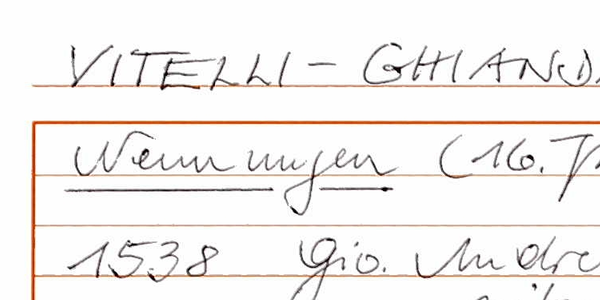 VITELLI - GHIAND
Nennungen (16. J
1538 Gio. Andre